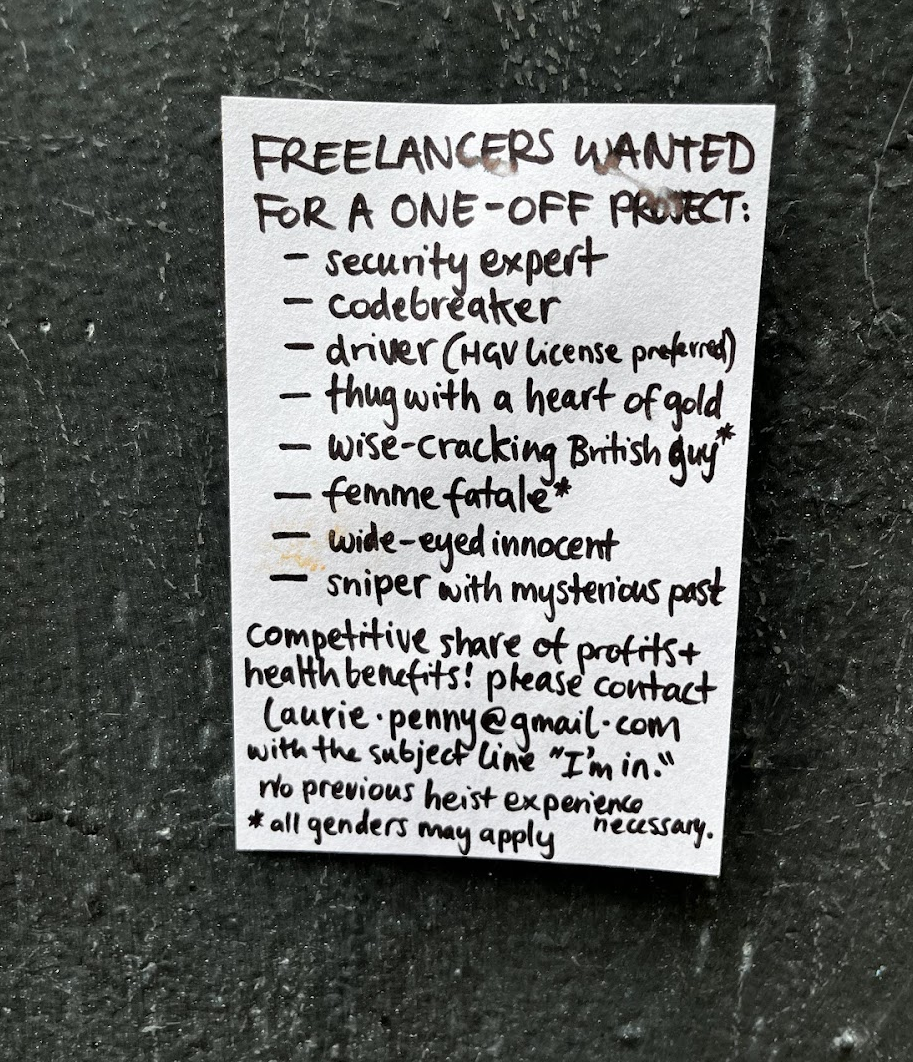 FREELANCERS WANTED
FOR A ONE-OFF PROJECT:
- security expert
- codebreaker
- driver (HGV license preferred)
- thug with a heart of gold
- wise-cracking British guy*
- femme fatale*
- wide-eyed innocent
- sniper with mysterious past
competitive share of profits +
health benefits! please contact
laurie.penny@gmail.com
with the subject line "I'm in."
No previous heist experience
necessary.
*all genders may apply